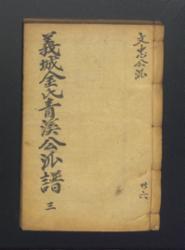 文忠公派
義城金氏青溪公派譜 三
共六